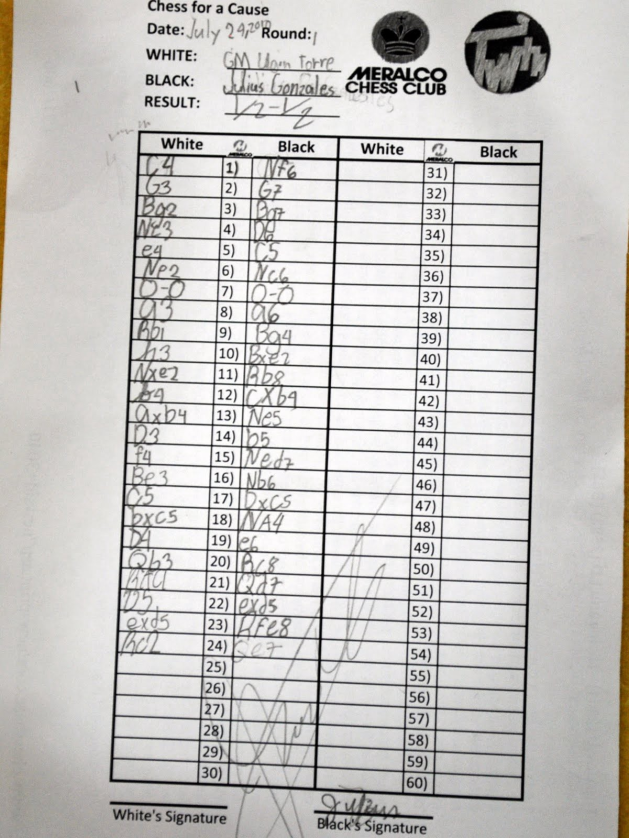 Chess for a Cause
Date: July 29, 2010 Round: 1
WHITE: GM Torre
BLACK: Julius Gonzales
RESULT: 1/2-1/2
MERALCO
CHESS CLUB
White MERALCO Black White MERALCO Black
C4 1) Nf6 31)
G3 2) G7 32)
Bg2 3) Bg7 33)
Ne3 4) D6 34)
e4 5) C5 35)
Ne2 6) Nc6 36)
O-O 7) O-O 37)
a3 8) a6 38)
Rb1 9) Bg4 39)
h3 10) Bxe2 40)
Nxe2 11) Rb8 41)
b4 12) cXb4 42)
axb4 13) Ne5 43)
D3 14) b5 44)
f4 15) Ned7 45)
Be3 16) Nb6 46)
C5 17) DxC5 47)
bxc5 18) NA4 48)
D4 19) e6 49)
Qb3 20) Rc8 50)
21) Qd7 51)
D5 22) exd5 52)
exd5 23) Rfe8 53)
Rc2 24) Qe7 54)
25) 55)
26) 56)
27) 57)
28) 58)
29) 59)
30) 60)
White's Signature
Black's Signature